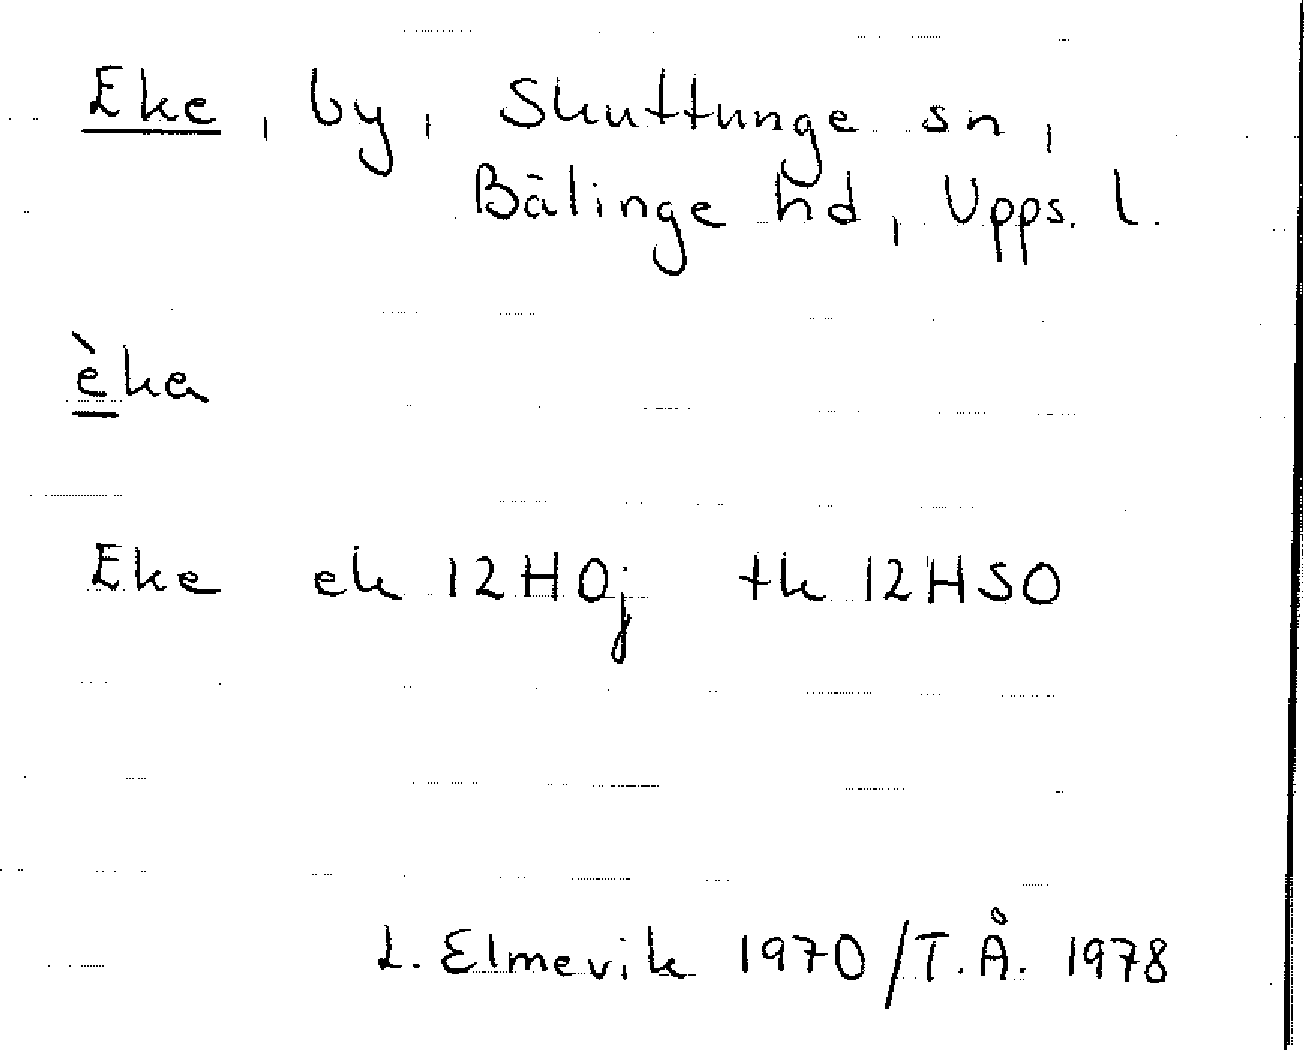 Eke, by, Skuttunge sn,
Bälinge hd, Upps. l.
èka
Eke ek 12H0j tk 12HSO
L. Elmevik 1970/T.Å. 1978